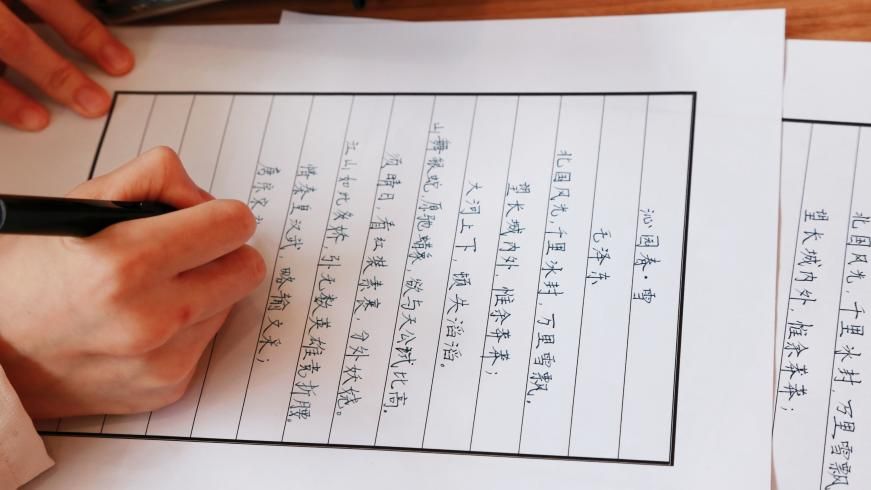 沁园春·雪
毛泽东
北国风光,千里冰封,万里雪飘。
望长城内外,惟余莽莽;
大河上下,顿失滔滔。
山舞银蛇,原驰蜡象,欲与天公试比高。
须晴日,看红装素裹,分外妖娆。
江山如此多娇,引无数英雄竞折腰。
惜秦皇汉武,略输文采;
唐宗宋
北国风光,千里冰封,万里雪飘
望长城内外,惟余莽莽;